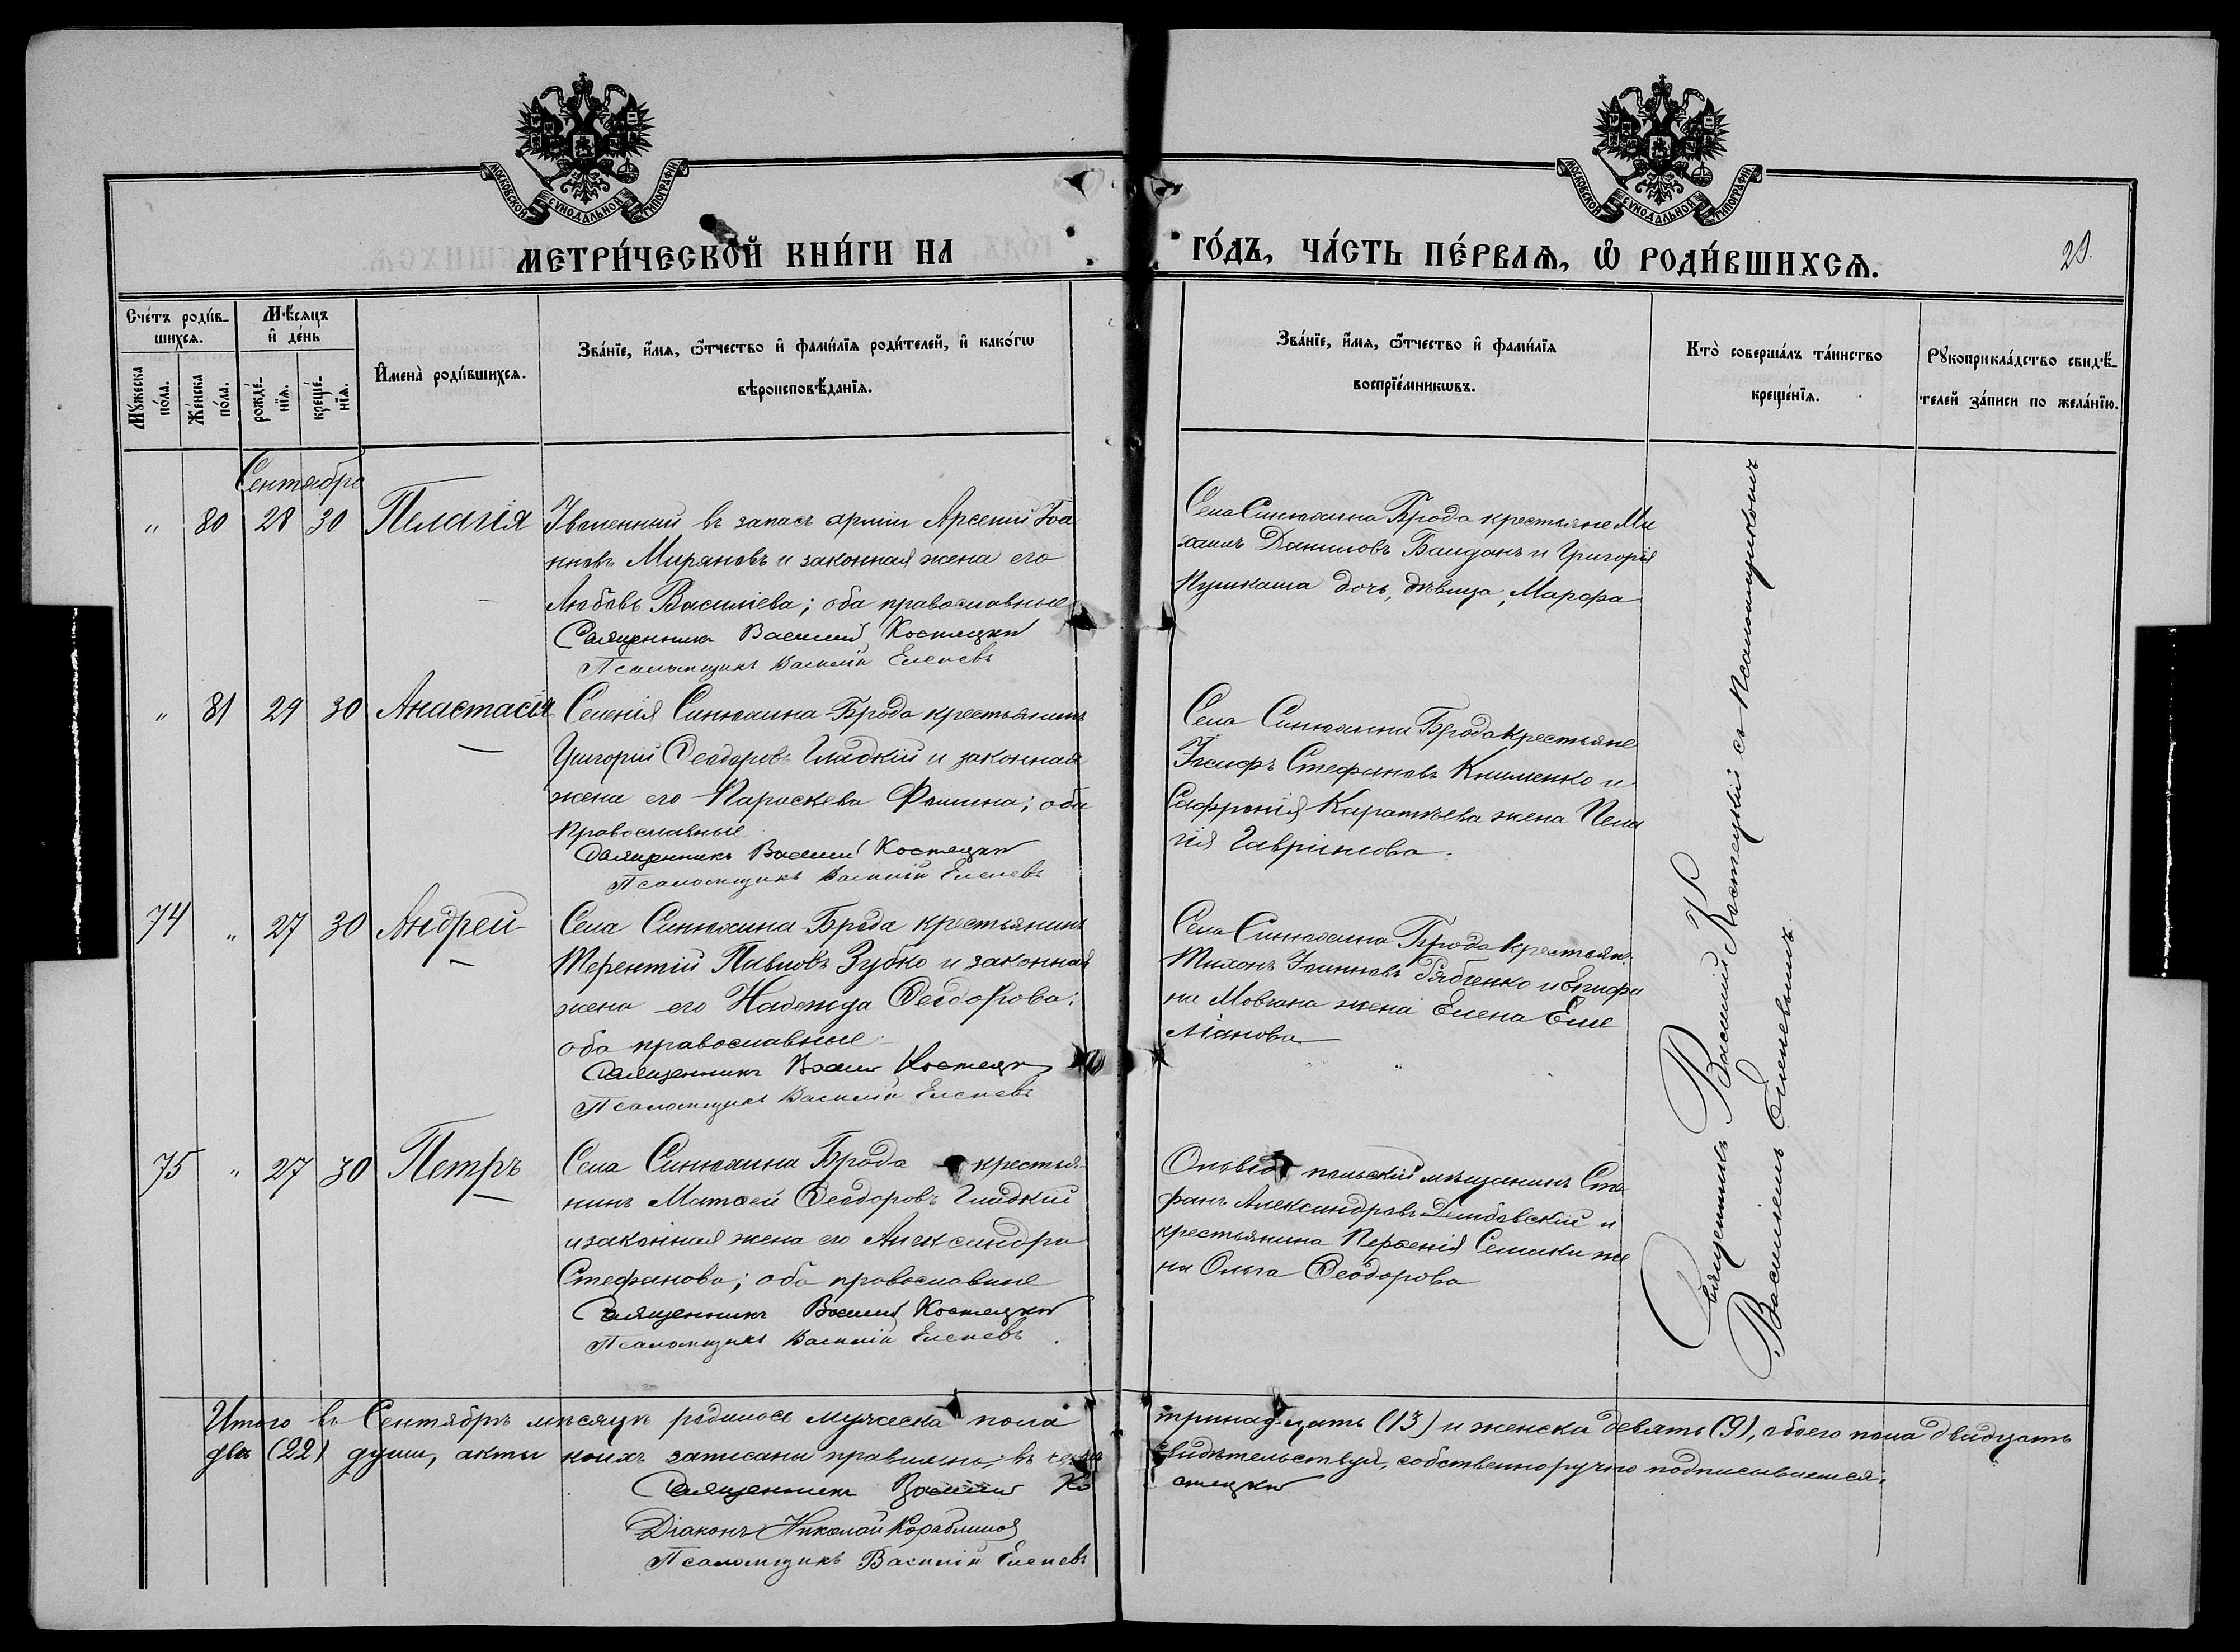 МОСКОВСКОЙ СѴНОДАЛЬНОЙ ТИПОГРАФІИ
МОСКОВСКОЙ СѴНОДАЛЬНОЙ ТИПОГРАФІИ
МЕТРИ́ЧЕСКОЙ КНИ́ГИ НА
ГО́ДЪ, ЧА́СТЬ ПЕ́РВАѦ, Ѿ РОДИ́ВШИХСѦ.
Сче́тъ роди́в-
шихсѧ.
Мѣ́сяцъ
и҆ де́нь
Мꙋ́жеска
по́ла.
Же́нска
по́ла.
рожде́-
нїѧ.
креще́-
нїѧ.
И҆мена̀ роди́вшихсѧ.
Зва́нїе, и҆́мѧ, ѻ҆́тчество и҆ фами́лїѧ роди́телей, и҆ како́гѡ
вѣроисповѣ́данїѧ.
Зва́нїе, и҆́мѧ, ѻ҆́тчество и҆ фами́лїѧ
воспрїе́мникѡвъ.
Кто̀ соверша́лъ та́инство
креще́нїѧ.
Рꙋкоприкла́дство свидѣ́-
телей за́писи по жела́нїю.
Сентября
" 80 28 30 Пелагія
Уволенный въ запасъ арміи Арсеній Іоа
нновъ Миряновъ и законная жена его
Любовь Василіева; оба православные
Священникъ Василій Костецкій
Псаломщикъ Василій Еленевъ
Села Синюхина Брода крестьяне Ми
хаилъ Даниловъ Байданъ и Григорія
Пушкаша дочь, дѣвица, Марфа
" 81 29 30 Анастасія
Селенія Синюхина-Брода крестьянинъ
Григорій Ѳеодоровъ Гладкій и законная
жена его Параскева Фомина; оба
православные
Священникъ Василій Костецкій
Псаломщикъ Василій Еленевъ
Села Синюхина Брода крестьяне
Іосифъ Стефановъ Клименко и
Софронія жена Пела
гія Гавріилова.
74 " 27 30 Андрей
Села Синюхина-Брода крестьянинъ
Терентій Павловъ Зубко и законная
жена его Надежда Ѳеодорова;
оба православные.
Священникъ Василій Костецкій
Псаломщикъ Василій Еленевъ
Села Синюхина Брода крестьян.
Тихонъ Іоанновъ Рябченко и Епифа
на Мовчана жена Елена Еме
ліанова
75 " 27 30 Петръ
Села Синюхина Брода крестья-
нинъ Матѳей Ѳеодоровъ Гладкій
и законная жена его Александра
Стефанова; оба православные
Священникъ Василій Костецкій
Псаломщикъ Василій Еленевъ
Ольвіопольскій мѣщанинъ Сте
фанъ Александровъ Дембовскій и
крестьянина же
на Ольга Ѳеодорова
Священникъ Василій Костецкій съ псаломщикомъ
Василіемъ Еленевымъ.
Итого въ Сентябрѣ мѣсяцѣ родилось мужеска пола
тринадцать (13) и женска девять (9), обоего пола двадцать
два (22) души, акты коихъ записаны правильно; въ чемъ
свидѣтельствуя, собственноручно подписываемся:
Священникъ Василій Ко
стецкій
Діаконъ Николай Кораблиновъ
Псаломщикъ Василій Еленевъ